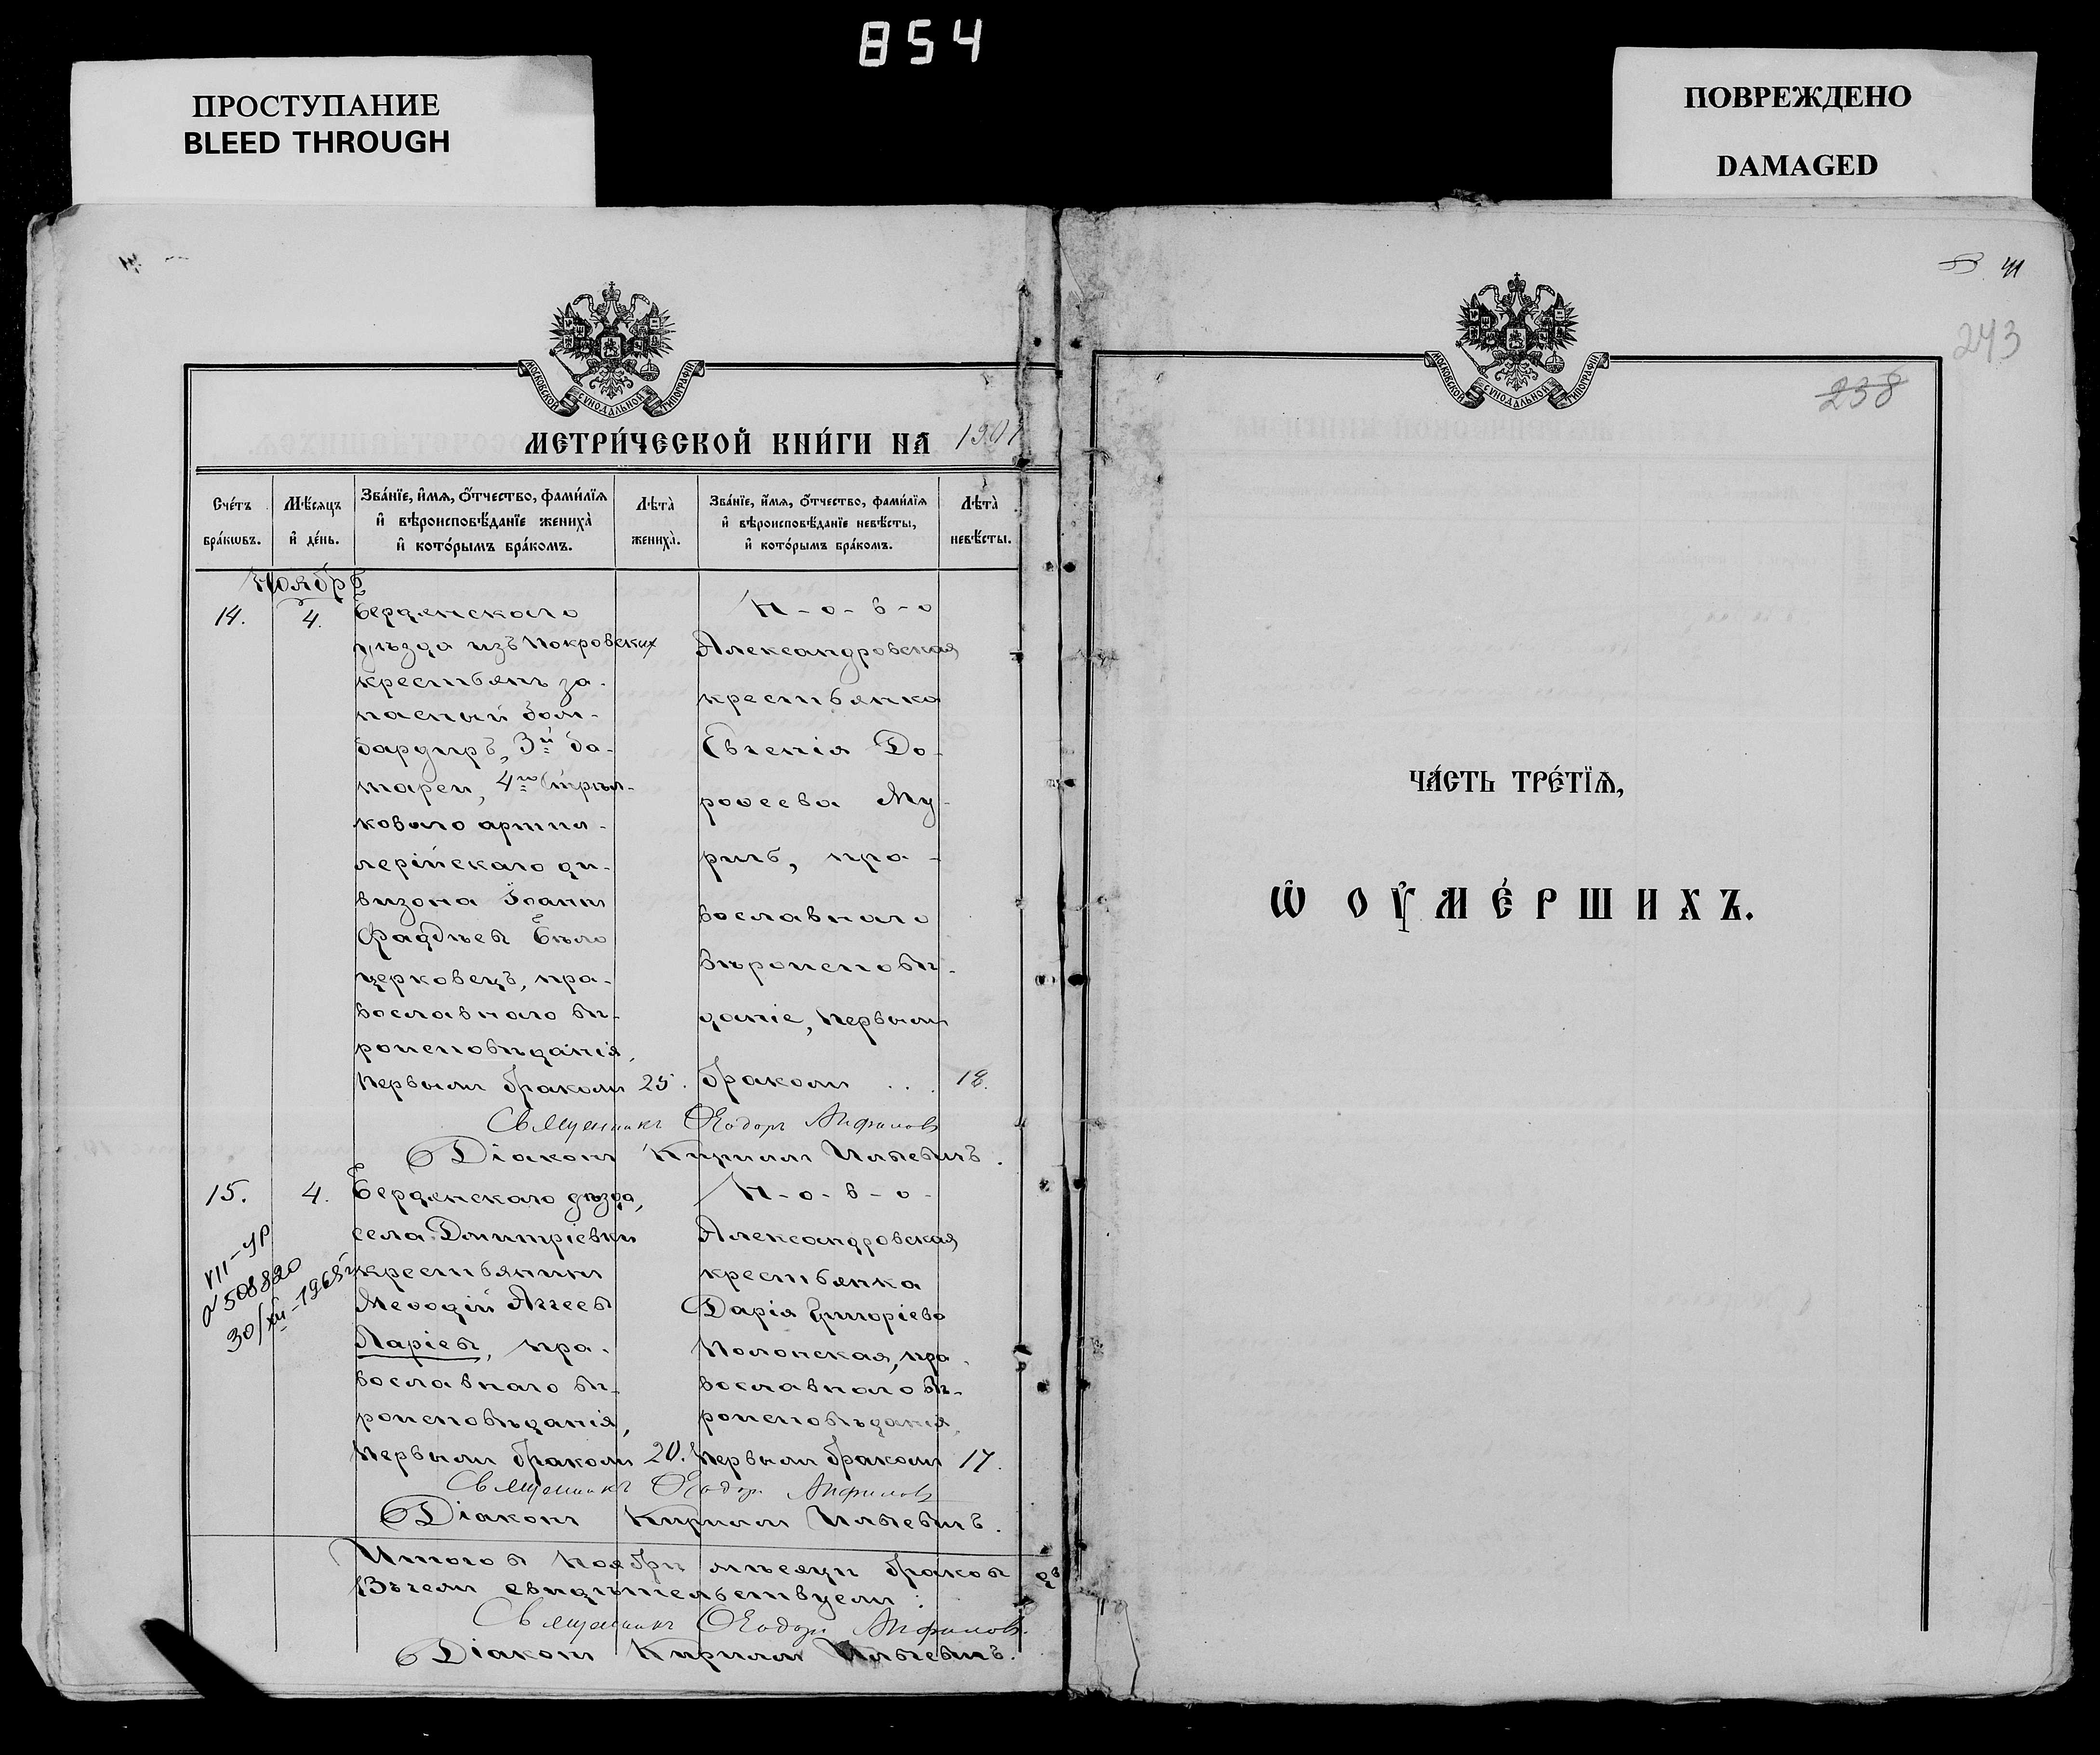 854
ПРОСТУПАНИЕ
BLEED THROUGH
ПОВРЕЖДЕНО
DAMAGED
МОСКОВСКОЙ СѴНОДАЛЬНОЙ ТИПОГРАФІИ
МЕТРИ́ЧЕСКОЙ КНИ́ГИ НА
Сче́тъ бра́кѡвъ.
Мѣ́сяцъ и де́нь.
Зва́нїе, и́мя, ѻ́тчество, фами́лїя и вѣроисповѣ́данїе жениха̀ и кото́рымъ бра́комъ.
Лѣта̀ жениха̀.
Зва́нїе, и́мя, ѻ́тчество, фами́лїя и вѣроисповѣ́данїе невѣ́сты, и кото́рымъ бра́комъ.
Лѣта̀ невѣ́сты.
Ноябрь
14.
4.
Бердянскаго
уѣзда изъ Покровскихъ
крестьянъ за-
пасный бом-
бардиръ, 3й ба-
тареи, 4го Стрѣл-
коваго артил-
лерійскаго ди-
визіона Іоаннъ
Фаддѣевъ Бѣло
церковецъ, пра-
вославнаго вѣ-
роисповѣданія,
первымъ бракомъ
25.
Н-о-в-о
Александровская
крестьянка
Евгенія До-
роѳеева Му-
ричъ, пра-
вославнаго
вѣроисповѣ-
даніе, первымъ
бракомъ
18.
Священникъ Ѳеодоръ
Діаконъ Кириллъ Ильевичъ.
15.
4.
Бердянскаго уѣзда,
села Дмитріевки
крестьянинъ
Меѳодій Аггеевъ
Ларіевъ, пра-
вославнаго вѣ-
роисповѣданія,
первымъ бракомъ
20.
Н-о-в-о-
Александровская
крестьянка
Дарія Григоріева
Полонская, пра-
вославнаго вѣ-
роисповѣданія,
первымъ бракомъ
17.
VII-УР
508820
Священникъ Ѳеодоръ
Діаконъ Кириллъ Ильевичъ.
Итого въ Ноябрѣ мѣсяцѣ браковъ
Въ чемъ свидѣтельствуемъ:
Священникъ Ѳеодоръ
Діаконъ Кириллъ Ильевичъ.
41
243
238
МОСКОВСКОЙ СѴНОДАЛЬНОЙ ТИПОГРАФІИ
ЧА́СТЬ ТРЕ́ТЇѦ,
Ѡ ОУМЕ́РШИХЪ.